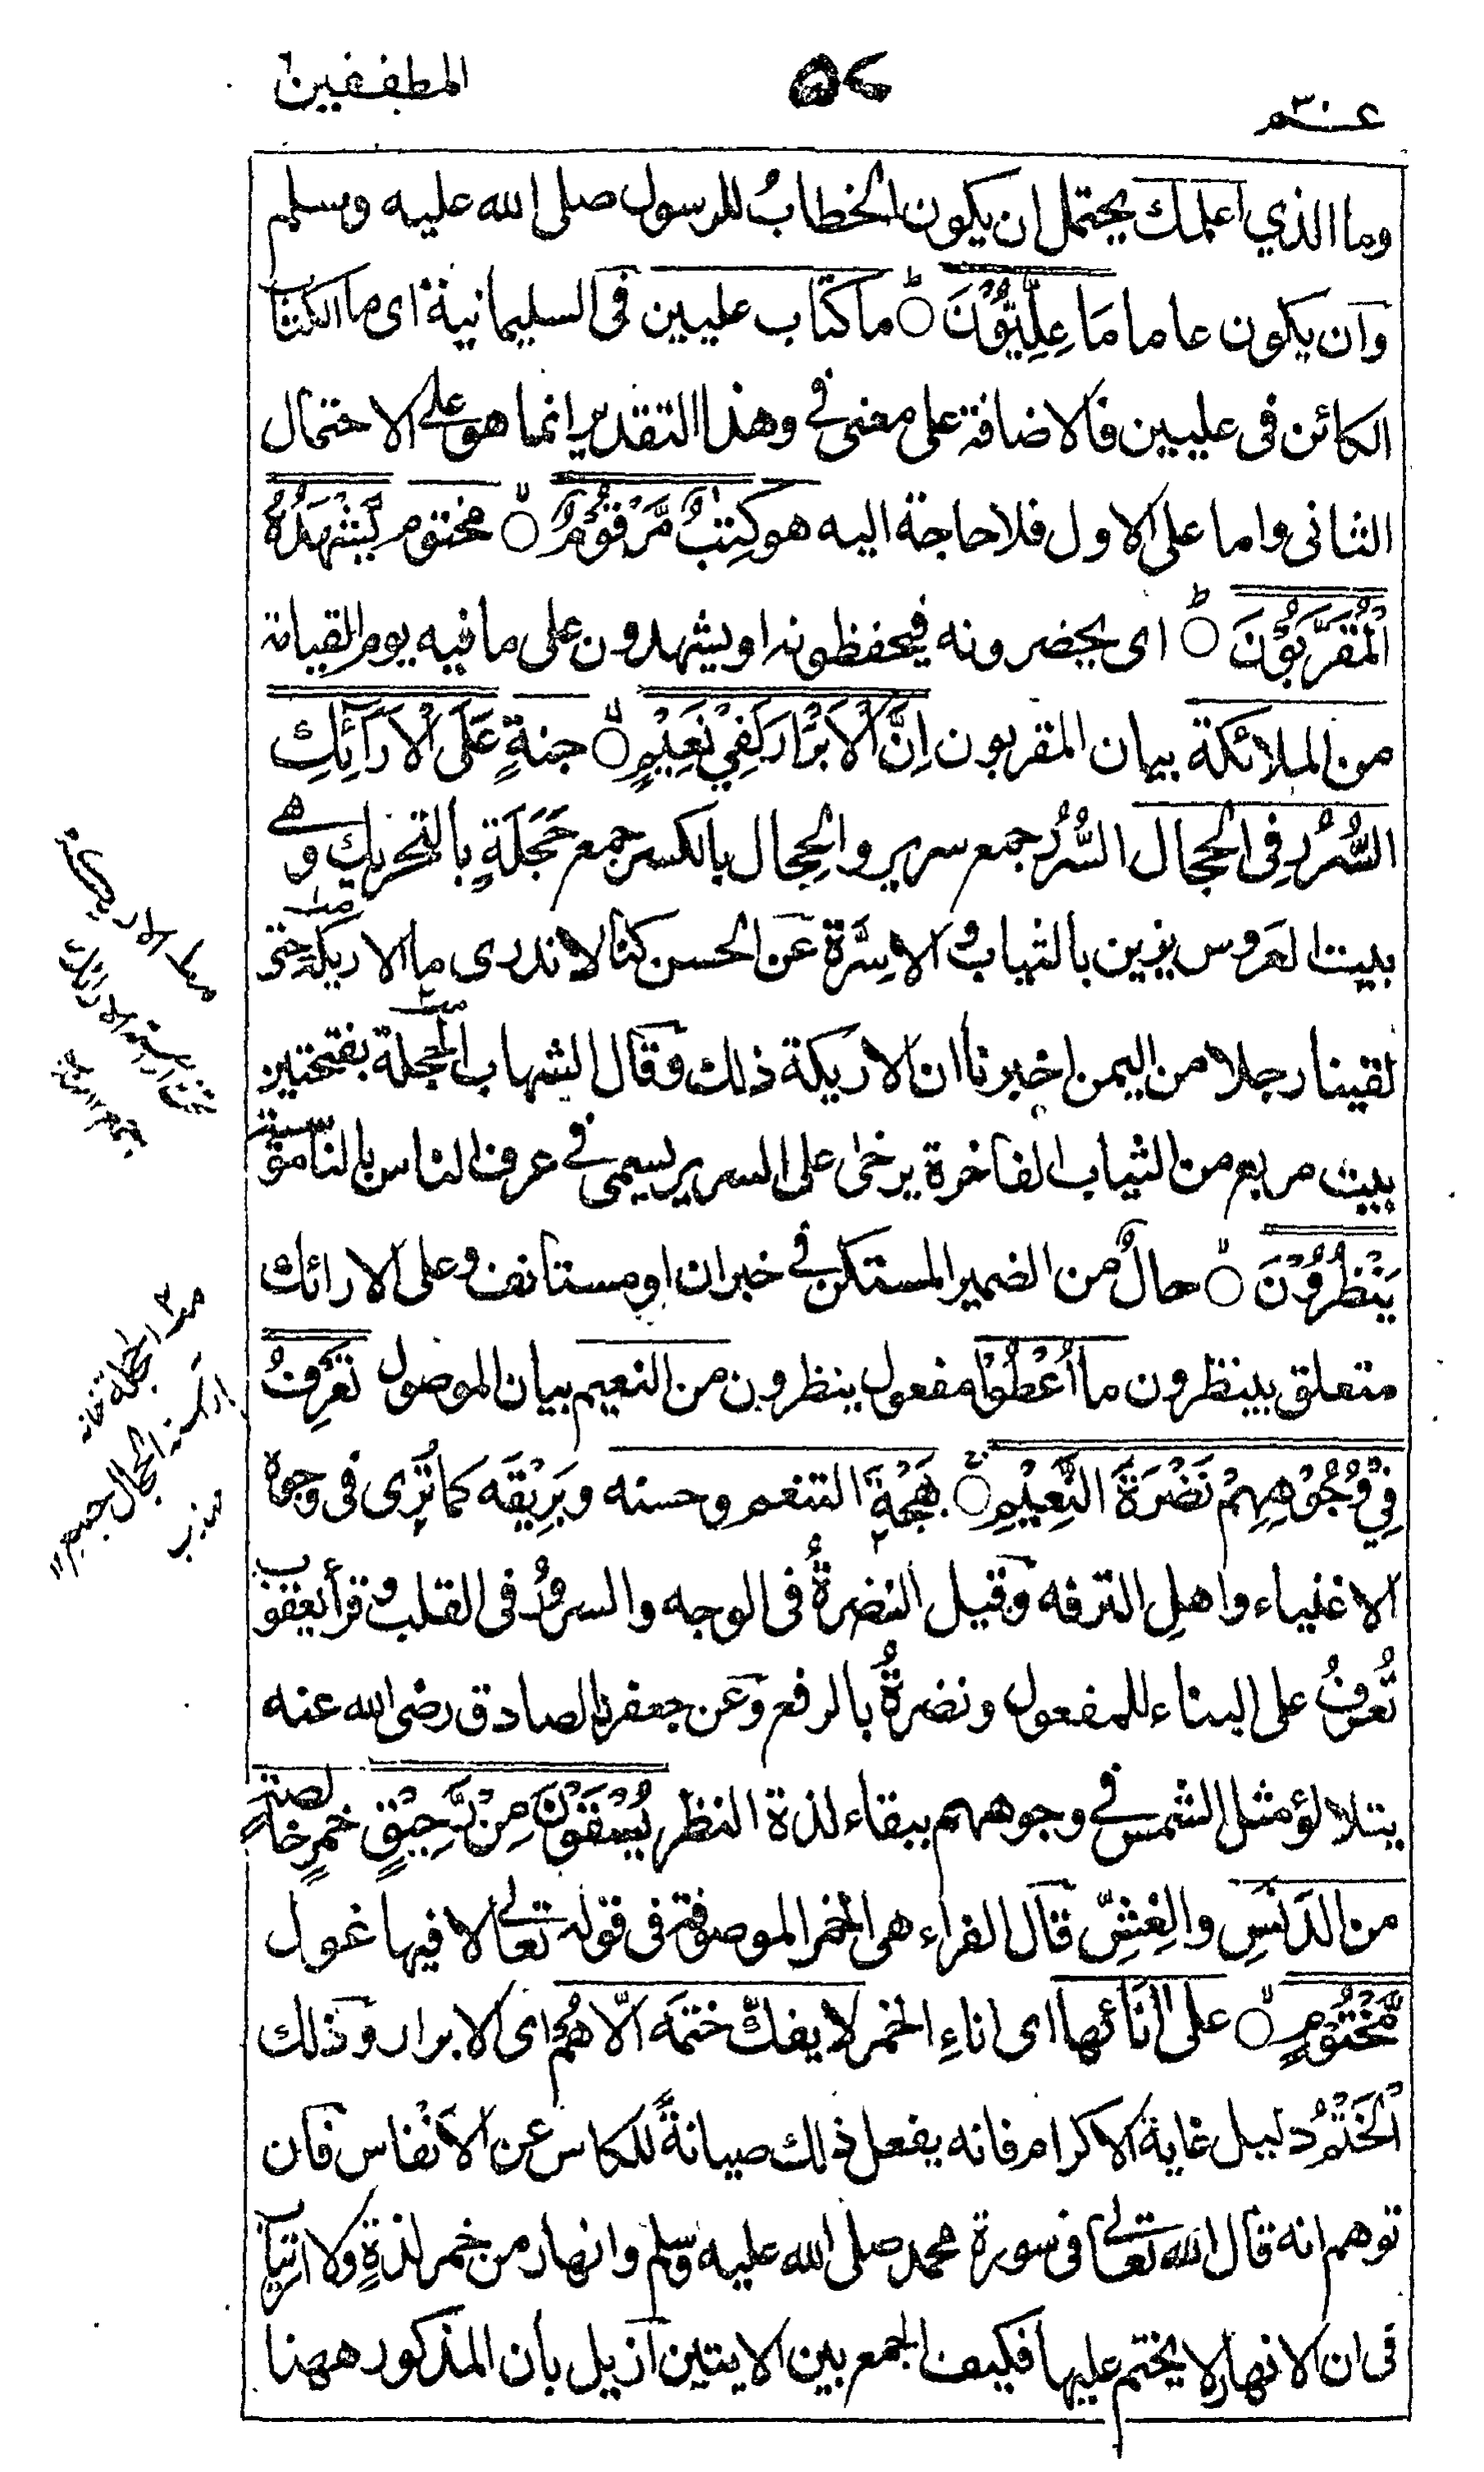 المطففين
٥٧
عم ٣٠
وما الذي اعلمك يحتمل ان يكون الخطابُ للرسول صلى الله عليه وسلم
وان يكون عاما مَا عِلِّيُّوْنَ ○ؕ ما كتاب عليين فى السليمانية اى ما الكتاب
الكائن فى عليين فالاضافة على معنى فى وهذا التقدير انما هو على الاحتمال
الثانى واما على الاول فلا حاجة اليه هو كِتٰبٌ مَّرْقُوْمٌ ○ۙ مختوم يَّشْهَدُهُ
الْمُقَرَّبُوْنَ ○ؕ اى يحضرونه فيحفظونه او يشهدون على ما فيه يوم القيامة
من الملائكة بيان المقربون اِنَّ الْاَبْرَارَ لَفِيْ نَعِيْمٍ ○ۙ جنةٍ عَلَى الْاَرَآئِكِ
السُّرُرِ فِى الحِجال السُّرُرُ جمع سرير والحِجال بالكسر جمع حَجَلَةٍ بالتحريك وهى
بيت العروس يزين بالثياب والاسِرَّة عن الحسن كنا لا ندرى ما الاريكة حتى
لقينا رجلا من اليمن اخبرنا ان الاريكة ذلك وقال الشهاب الحجلة بفتحتين
بيت مربع من الثياب الفاخرة يرخى على السرير يسمى فى عرف الناس بالناموسية
يَنْظُرُوْنَ ○ۙ حالٌ من الضمير المستكن فى خبر ان او مستانف وعلى الارائك
متعلق بينظرون ما اُعْطُوْا مفعول ينظرون من النعيم بيان الموصول تَعْرِفُ
فِيْ وُجُوْهِهِمْ نَضْرَةَ النَّعِيْمِ ○ۚ بَهْجَةَ التنعم وحسنه وبَرِيْقَه كما تُرٰى فى وجوه
الاغنياء واهلِ الترفه وقيل النضرةُ فى الوجه والسرورُ فى القلب وقرأ يعقوب
تُعْرَفُ على البناء للمفعول ونضرةُ بالرفع وعن جعفر الصادق رضى الله عنه
يتلالؤ مثل الشمس فى وجوههم ببقاء لذة النظر يُسْقَوْنَ مِنْ رَّحِيْقٍ خمرٍ خالصة
من الدَنَسِ والغِشِّ قال الفراء هى الخمر الموصوفة فى قوله تعالى لا فيها غول
مَّخْتُوْمٍ ○ۙ على اِنَائها اى اناءِ الخمر لا يفكّ ختمَه الّا هُمْ اى الابرار وذلك
الْخَتْمُ دليل غاية الاكرام فانه يفعل ذلك صيانةً للكاس عن الاَنْفاس فان
توهم انه قال الله تعالى فى سورة محمد صلى الله عليه وسلم وانهار من خمر لذةٍ ولا ارتياب
فى ان الانهار لا يختم عليها فكيف الجمع بين الايتين ازيل بان المذكور ههنا
الاريكة
الحجلة
الحجال